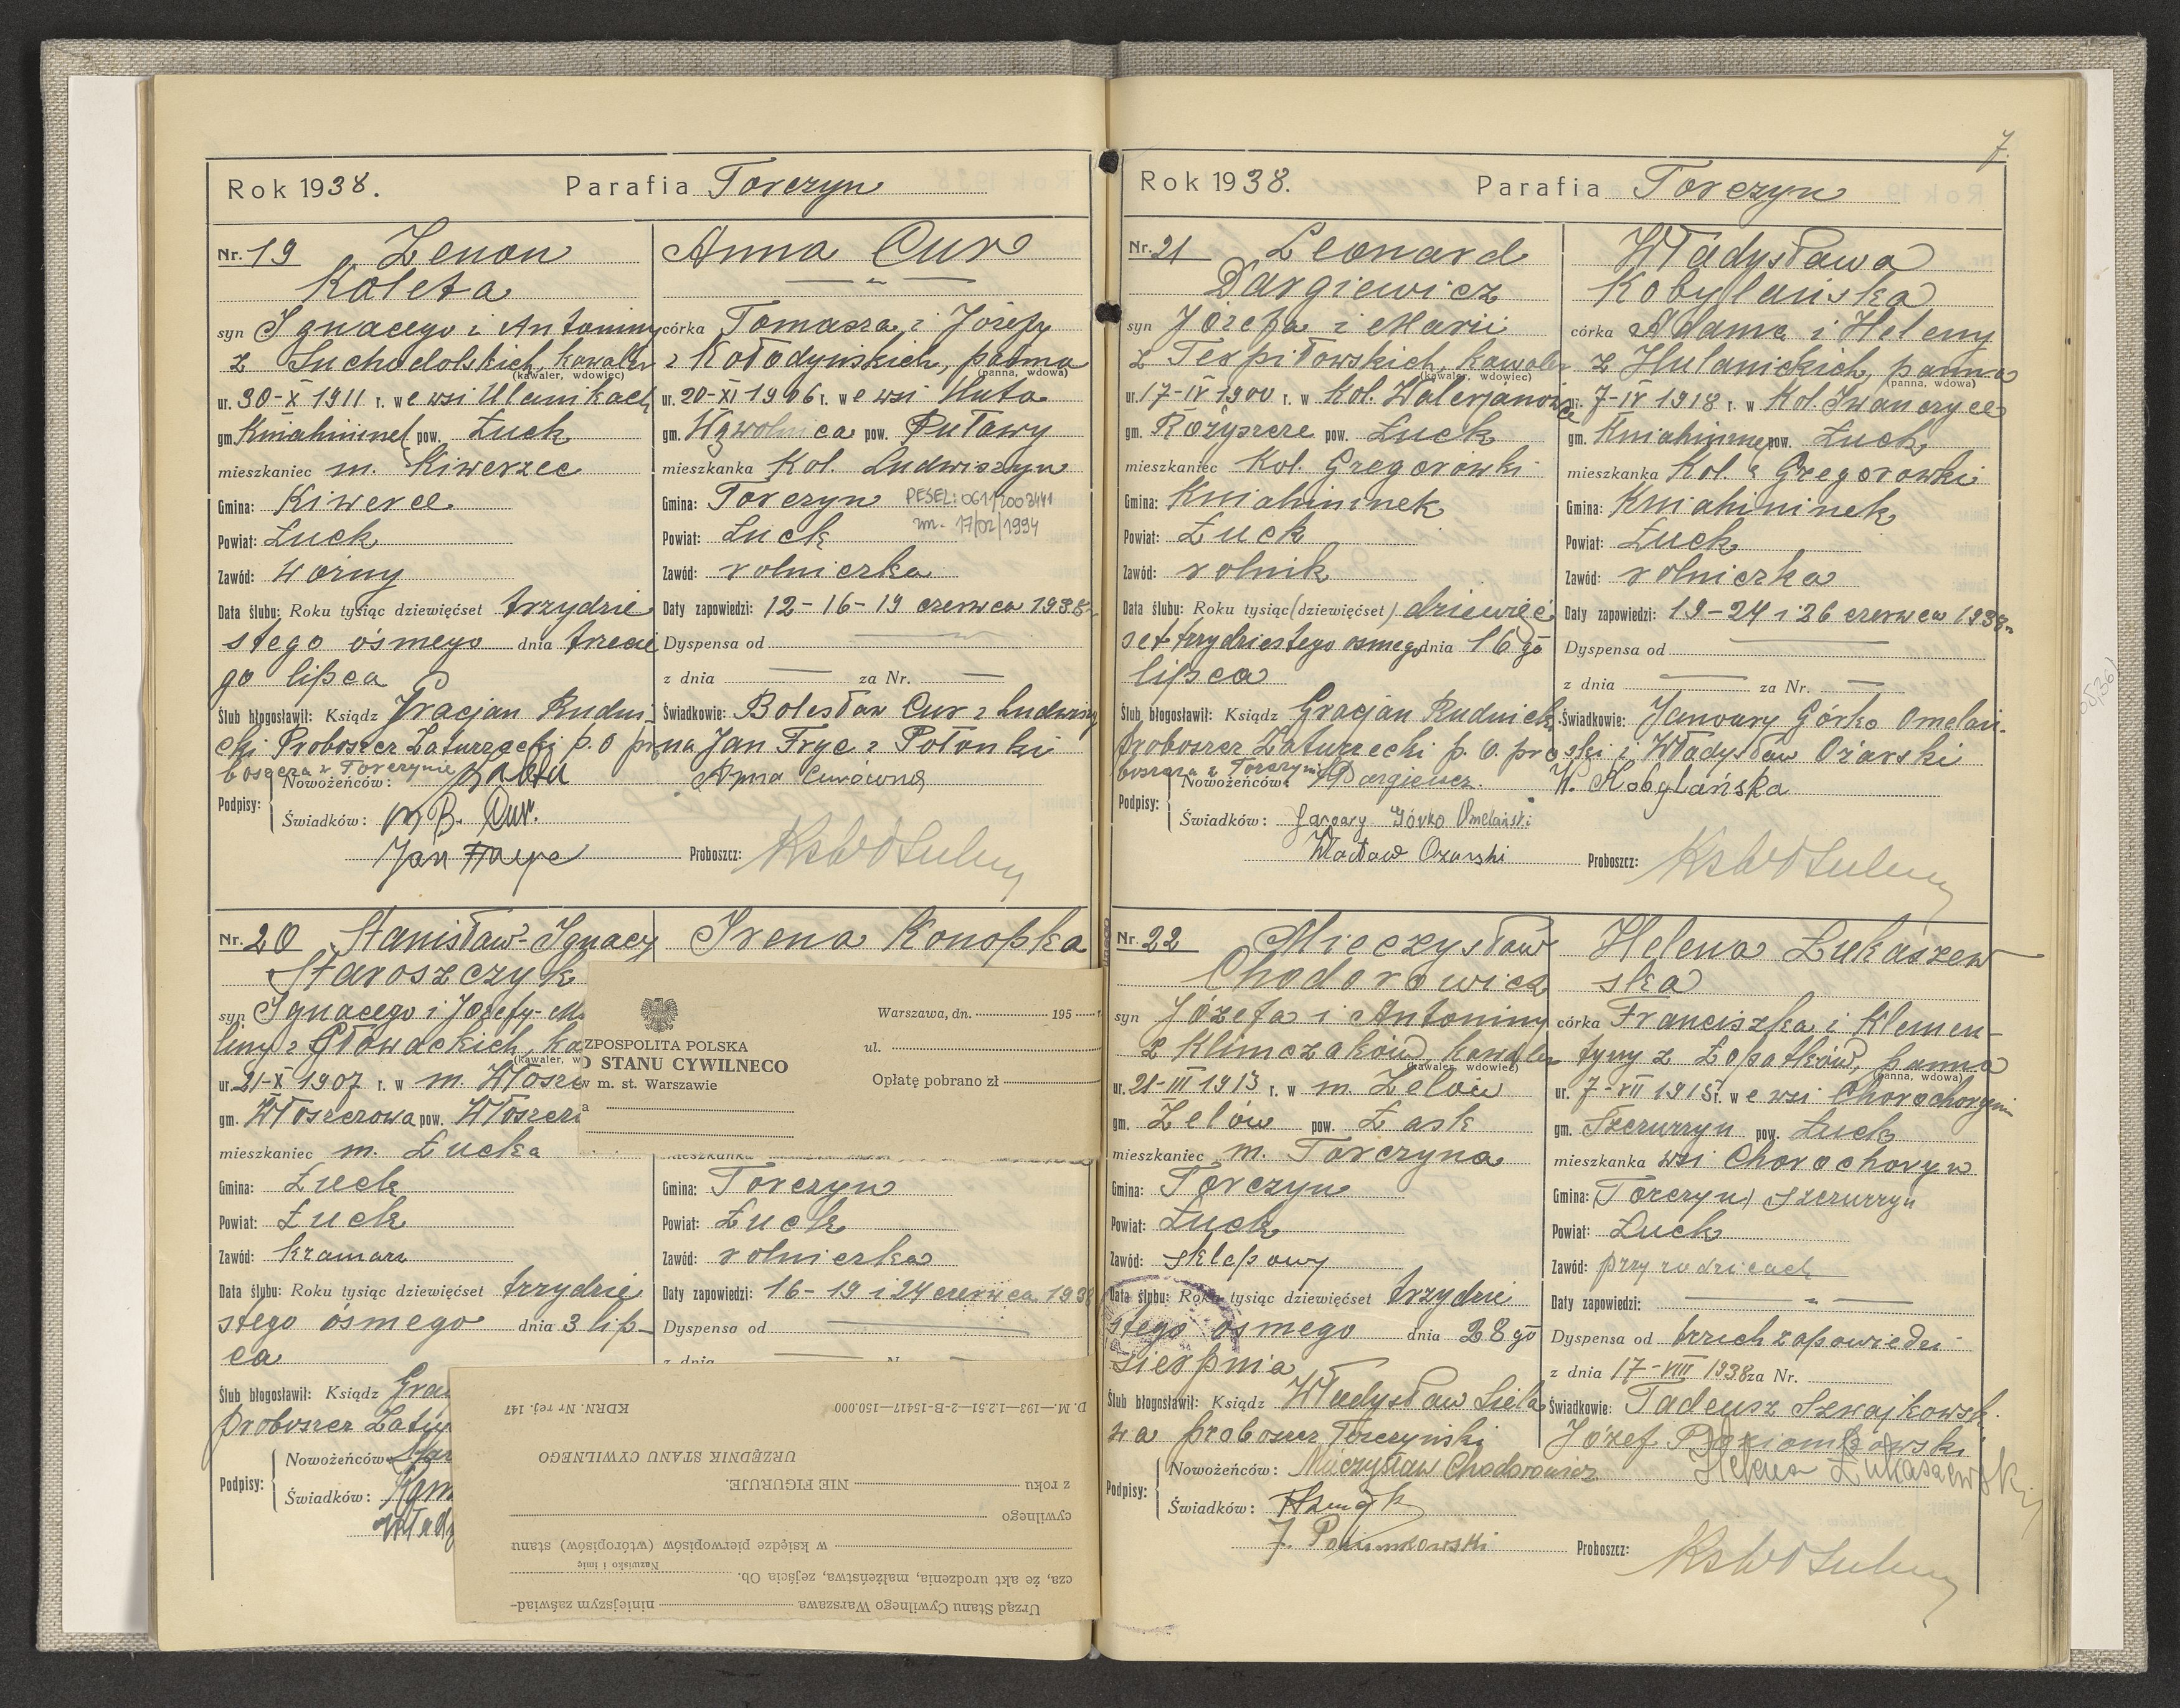 7.
Rok 1938. Parafia Torczyn
Nr. 19 Zenon
Koleta
syn Ignacego i Antoniny
z Suchodolskich, kawaler
(kawaler, wdowiec)
ur. 30-X 1911 r. we wsi Ulanikach
gm. Kniahininek pow. Łuck
mieszkaniec m. Kiwerzec
Gmina: Kiwerce
Powiat: Łuck
Zawód: woźny
Data ślubu: Roku tysiąc dziewięćset trzydzie
stego ósmego dnia trzecie
go lipca
Ślub błogosławił: Ksiądz Gracjan Rudni
cki Proboszcz Zaturzecki p. o pro
boszcza w Torczynie
Anna Cur
córka Tomasza i Józefy
z Kołodyńskich, panna
(panna, wdowa)
ur. 20-XI 1906 r. we wsi Huta
gm. Wąwolnica pow. Puławy
mieszkanka Kol. Ludwiszyn
Gmina: Torczyn PESEL: 06112003441
zm. 17/02/1994
Powiat: Łuck
Zawód: rolniczka
Daty zapowiedzi: 12-16-19 czerwca 1938 r.
Dyspensa od —
z dnia — za Nr. —
Świadkowie: Bolesław Cur z Ludwiszy
na Jan Fryc z Połonki
Podpisy:
Nowożeńców: Anna Curówna
Świadków: B. Cur.
Jan
Proboszcz:
Nr. 20 Stanisław-Ignacy
Staroszczyk
syn Ignacego i Józefy-M
liny z Głowackich, ka
(kawaler, w
ur. 21-X 1907 r. w m. Włoszc
gm. Włoszczowa pow. Włoszcz
mieszkaniec m. Łucka
Gmina: Łuck
Powiat: Łuck
Zawód: kramarz
Data ślubu: Roku tysiąc dziewięćset trzydzie
stego ósmego dnia 3 lip-
ca
Ślub błogosławił: Ksiądz Grac
proboszcz Zatu
Podpisy:
Nowożeńców:
Świadków:
Irena Konopka
Warszawa, dn. 195
ZPOSPOLITA POLSKA
ul.
O STANU CYWILNEGO
w m. st. Warszawie
Opłatę pobrano zł
a
mieszkanka
Gmina: Torczyn
Powiat: Łuck
Zawód: rolniczka
Daty zapowiedzi: 16-19 i 24 czerwca 1938
Dyspensa od —
z dnia
Urząd Stanu Cywilnego Warszawa niniejszym zaświad-
cza, że akt urodzenia, małżeństwa, zejścia Ob.
Nazwisko i imię
w księdze pierwopisów (wtóropisów) stanu
cywilnego
z roku NIE FIGURUJE.
URZĘDNIK STANU CYWILNEGO
D. M.—193—1.2.51—2-B-15417—150.000 KDRN. Nr rej. 147
Rok 1938. Parafia Torczyn
Nr. 21 Leonard
Dargiewicz
syn Józefa i Marii
z Terpiłowskich, kawaler
(kawaler, wdowiec)
ur. 17-IV 1900 r. w Kol. Walerjanów
gm. Rożyszcze pow. Łuck
mieszkaniec Kol. Gregorówki
Gmina: Kniahininek
Powiat: Łuck
Zawód: rolnik
Data ślubu: Roku tysiąc (dziewięćset) dziewięć
set trzydziestego ósmego dnia 16 go
lipca
Ślub błogosławił: Ksiądz Gracjan Rudnicki
proboszcz Zaturzecki p. o. pro
boszcza z Torczyna
Władysława
Kobylańska
córka Adama i Heleny
z Hulanickich, panna
(panna, wdowa)
ur. 7-IV 1918 r. w Kol. Iwanczyce
gm. Kniahininek pow. Łuck
mieszkanka Kol. Gregorowki
Gmina: Kniahininek
Powiat: Łuck
Zawód: rolniczka
Daty zapowiedzi: 19-24 i 26 czerwca 1938 r.
Dyspensa od —
z dnia — za Nr. —
Świadkowie: January Górko Omelań-
ski i Władysław Ożarski
Podpisy:
Nowożeńców: Dargiewicz W. Kobylańska
Świadków: January Górko Omelański
Wacław Ożarski
Proboszcz:
Nr. 22 Mieczysław
Chodorowicz
syn Józefa i Antoniny
z Klimczaków, kawaler
(kawaler, wdowiec)
ur. 21-III 1913 r. w m. Zelów
gm. Zelów pow. Łask
mieszkaniec m. Torczyna
Gmina: Torczyn
Powiat: Łuck
Zawód: sklepowy
Data ślubu: Roku tysiąc dziewięćset trzydzie
stego ósmego dnia 28 go
sierpnia
Ślub błogosławił: Ksiądz Władysław
proboszcz Torczyński
Helena Łukaszew
ska
córka Franciszka i Klemen-
tyny z Łopatków, panna
(panna, wdowa)
ur. 7-VII 1915 r. we wsi Chorochoryn
gm. Szczurzyn pow. Łuck
mieszkanka wsi Chorochoryn
Gmina: (Torczyn) Szczurzyn
Powiat: Łuck
Zawód: przy rodzicach
Daty zapowiedzi: — " —
Dyspensa od trzech zapowiedzi
z dnia 17-VIII 1938 za Nr.
Świadkowie: Tadeusz Szwajkowski
Józef Poziomkowski
Podpisy:
Nowożeńców: Mieczysław Chodorowicz Helena Łukaszewska
Świadków:
J. Poziomkowski
Proboszcz: